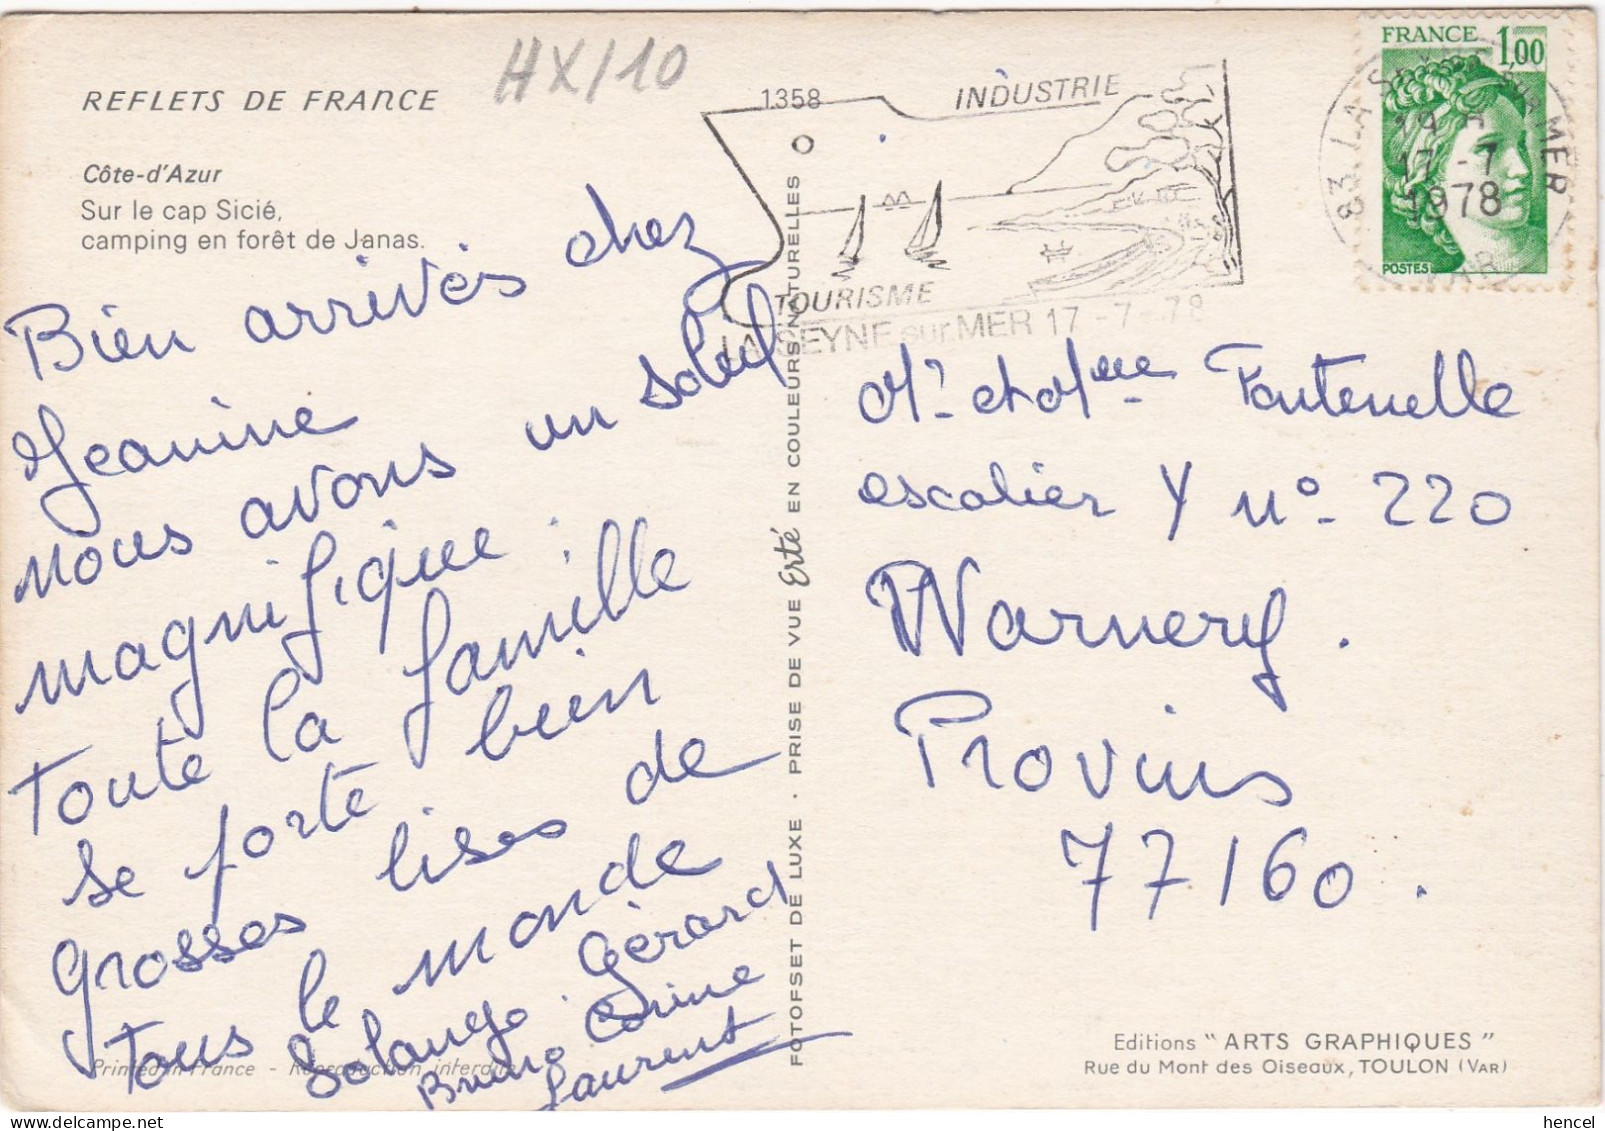 HX/10
REFLETS DE FRANCE
Côte-d'Azur
Sur le cap Sicié,
camping en forêt de Janas.
Bien arrivés chez
Jeanine
nous avons un soleil
magnifique.
Toute la famille
se porte bien
Grosses bises de
Tous le monde
Solange. Gérard
Bruno Corine
Laurent
Printed in France - Reproduction interdite
FOTOFSET DE LUXE · PRISE DE VUE Erté EN COULEURS NATURELLES
1358
INDUSTRIE
TOURISME
LA SEYNE sur MER 17 - 7 - 78
FRANCE 1,00
POSTES
83 LA SEYNE SUR MER
17 - 7
1978
VAR
Mr et Mme Fontenelle
escalier Y no 220
Warnery.
Provins
77160.
Editions "ARTS GRAPHIQUES"
Rue du Mont des Oiseaux, TOULON (VAR)
hencel